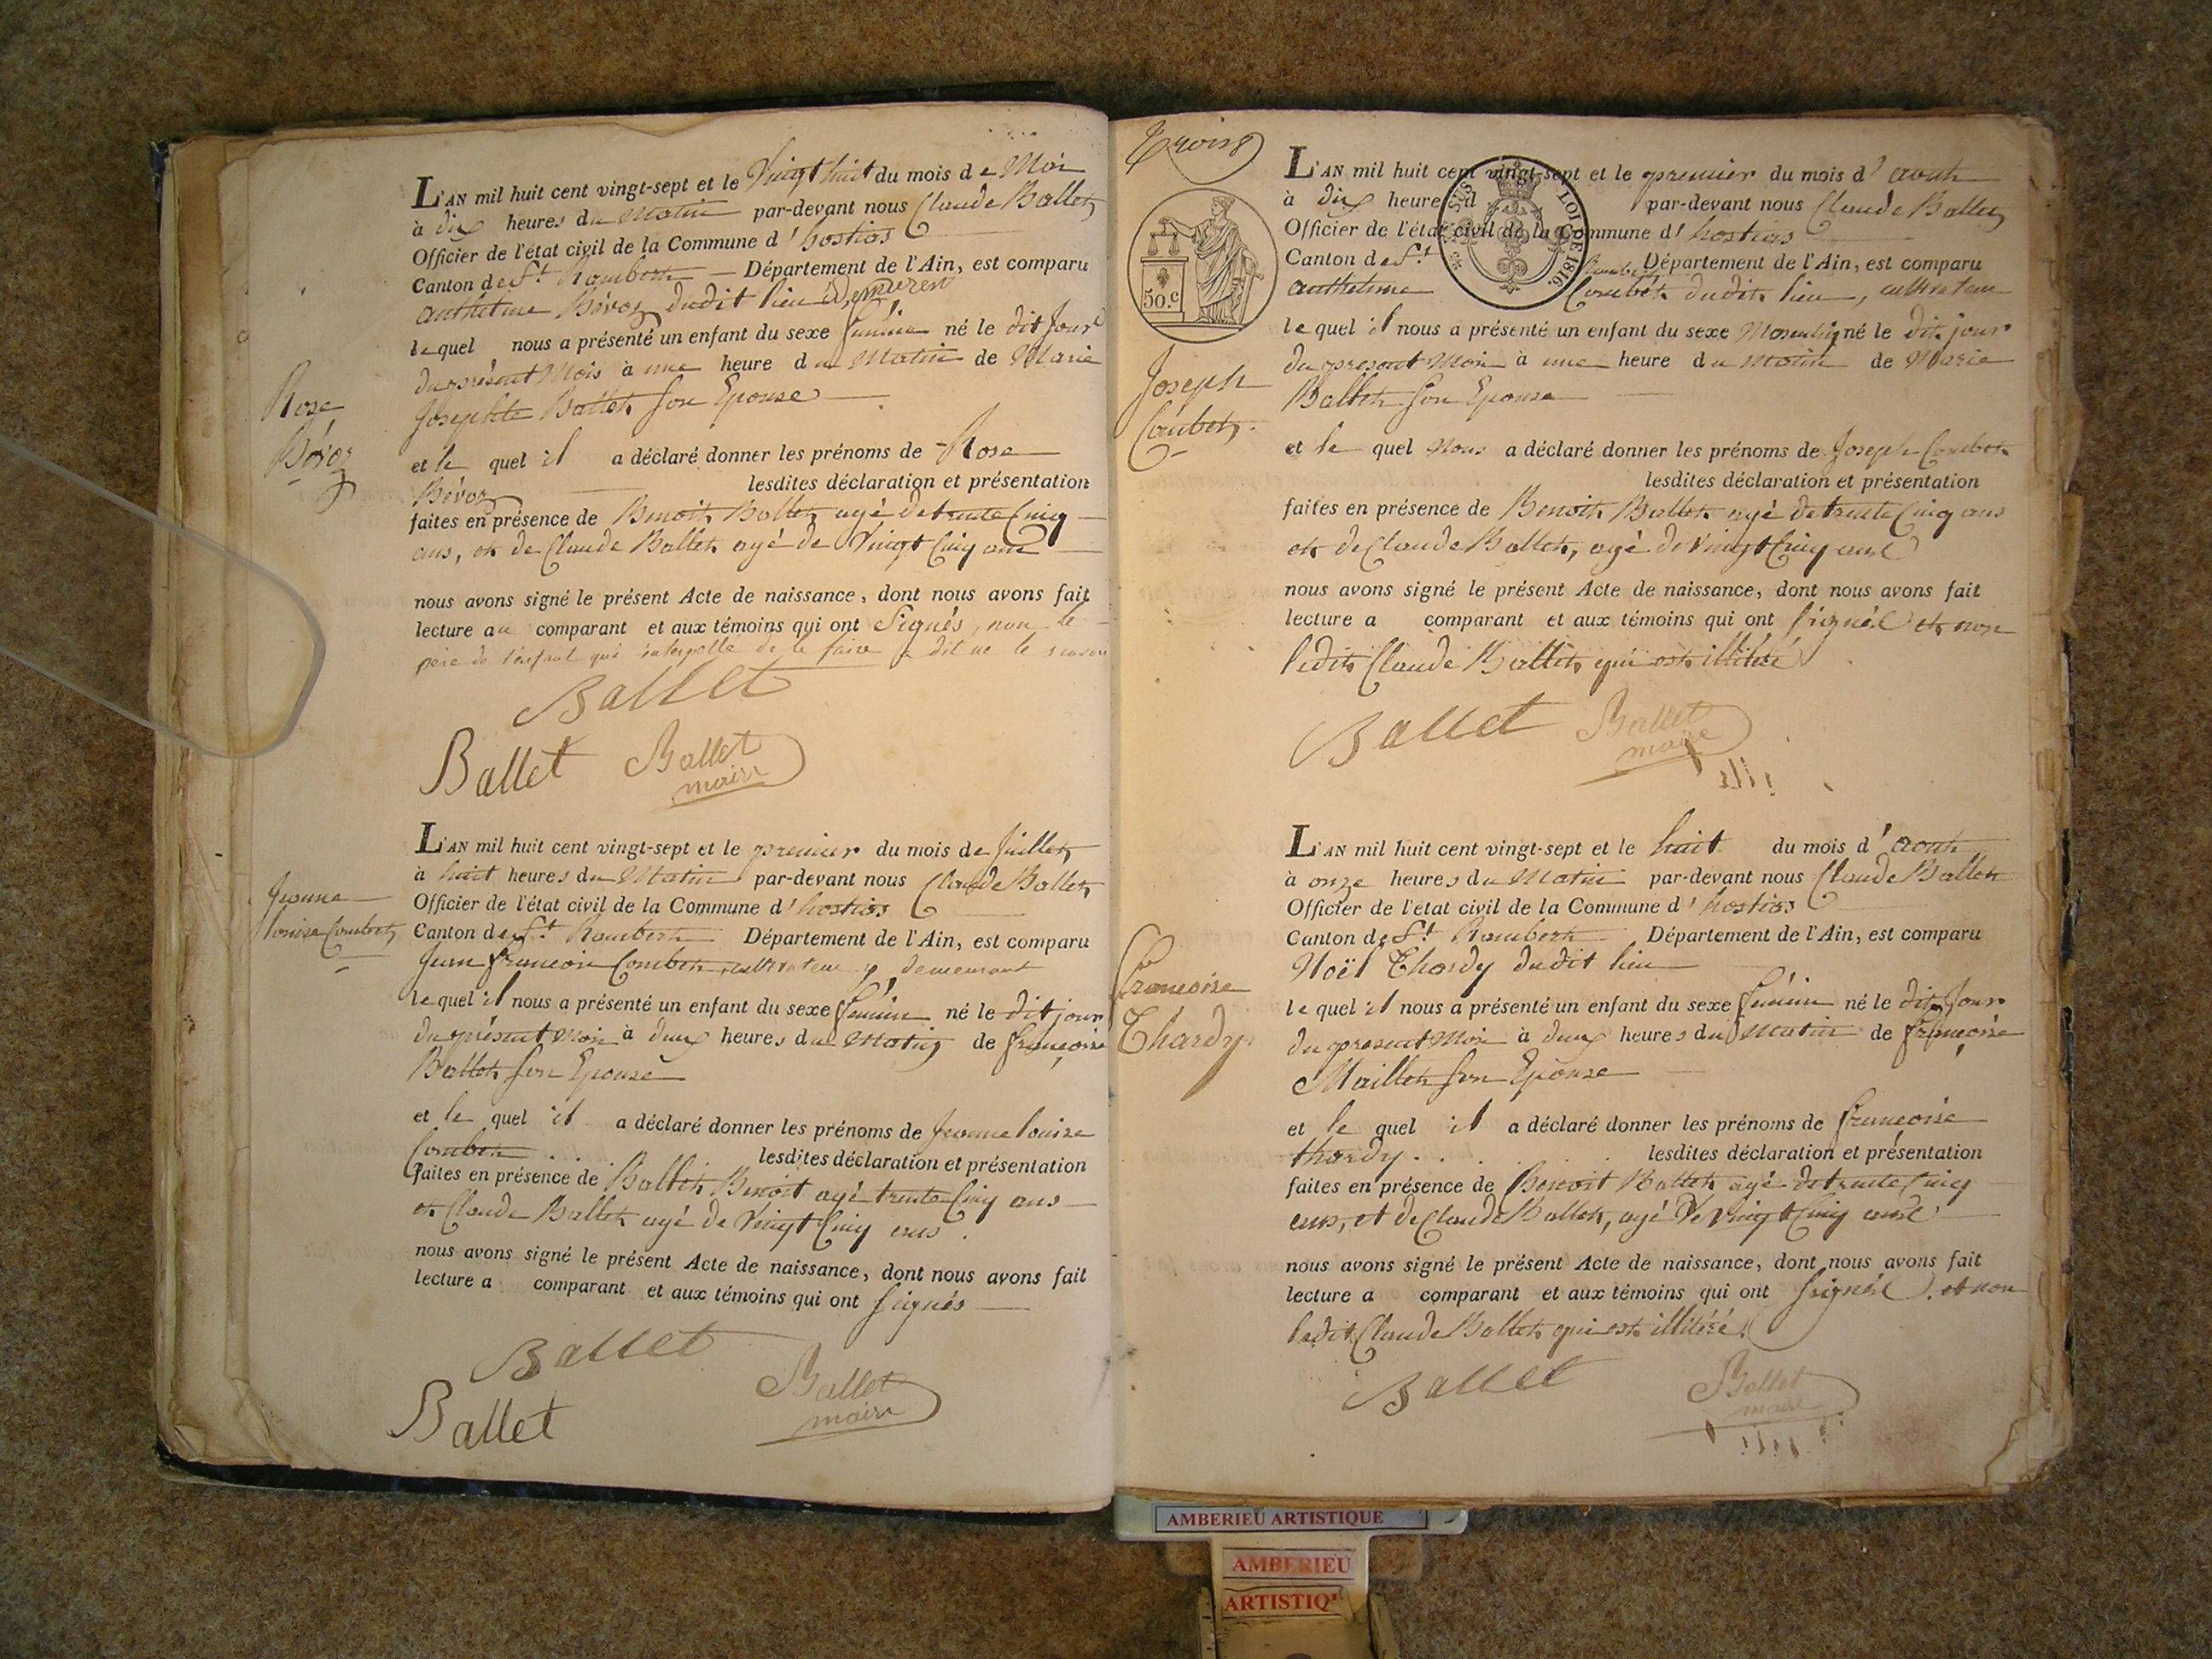 L'AN mil huit cent vingt-sept et le Vingt huit du mois de Mai
à dix heures du Matin par-devant nous Claude Ballet
Officier de l'état civil de la Commune d'hostias
Canton de St Rambert Département de l'Ain, est comparu
anthelme Bévoz dudit lieu
lequel nous a présenté un enfant du sexe feminin né le dit Jour
du présent Mois à une heure du Matin de Marie
Josephte Ballet son Epouse
Rose
Bévoz
et le quel il a déclaré donner les prénoms de Rose
Bévoz lesdites déclaration et présentation
faites en présence de Benoit Ballet agé de trente Cinq
ans, et de Claude Ballet agé de Vingt Cinq ans
nous avons signé le présent Acte de naissance, dont nous avons fait
lecture au comparant et aux témoins qui ont Signés, non le
père de l'enfant qui interpellé de le faire a dit ne le savoir
Ballet
Ballet Ballet
maire
L'AN mil huit cent vingt-sept et le premier du mois de Juillet
à huit heures du Matin par-devant nous Claude Ballet
Officier de l'état civil de la Commune d'hostias
Jeanne
louise Combet
Canton de St Rambert Département de l'Ain, est comparu
Jean françois Combet cultivateur y demeurant
lequel il nous a présenté un enfant du sexe féminin né le dit jour
du présent Mois à deux heures du Matin de françoise
Ballet son Epouse
et le quel il a déclaré donner les prénoms de Jeanne louise
Combet lesdites déclaration et présentation
faites en présence de Ballet Benoit agé trente Cinq ans
et Claude Ballet agé de Vingt Cinq ans.
nous avons signé le présent Acte de naissance, dont nous avons fait
lecture a comparant et aux témoins qui ont signés
Ballet
Ballet Ballet
maire
Trois
50.c
LOI DE 1816.
L'AN mil huit cent vingt-sept et le premier du mois d'août
à dix heures d par-devant nous Claude Ballet
Officier de l'état civil de la Commune d'hostias
Canton de St Rambert Département de l'Ain, est comparu
anthelme Combet dudit lieu, cultivateur
lequel il nous a présenté un enfant du sexe Masculin né le dit jour
du present Mois à une heure du Matin de Marie
Ballet son Epouse
Joseph
Combet.
et le quel Nous a déclaré donner les prénoms de Joseph Combet
lesdites déclaration et présentation
faites en présence de Benoit Ballet agé de trente Cinq ans
et de Claude Ballet, agé de Vingt Cinq ans
nous avons signé le présent Acte de naissance, dont nous avons fait
lecture a comparant et aux témoins qui ont signés et non
ledit Claude Ballet qui est illitéré
Ballet Ballet
maire
L'AN mil huit cent vingt-sept et le huit du mois d'août
à onze heures du Matin par-devant nous Claude Ballet
Officier de l'état civil de la Commune d'hostias
Canton de St Rambert Département de l'Ain, est comparu
Noël Thardy dudit lieu
Francoise
Thardy
lequel il nous a présenté un enfant du sexe féminin né le dit Jour
du present Mois à deux heures du Matin de françoise
Maillet son Epouse
et le quel il a déclaré donner les prénoms de francoise
thardy lesdites déclaration et présentation
faites en présence de Benoit Ballet agé de trente Cinq
ans, et de Claude Ballet, agé de vingt Cinq ans
nous avons signé le présent Acte de naissance, dont nous avons fait
lecture a comparant et aux témoins qui ont signés. et non
ledit Claude Ballet qui est illitéré.
Ballet Ballet
maire
AMBERIEU ARTISTIQUE
AMBERIEU
ARTISTIQ